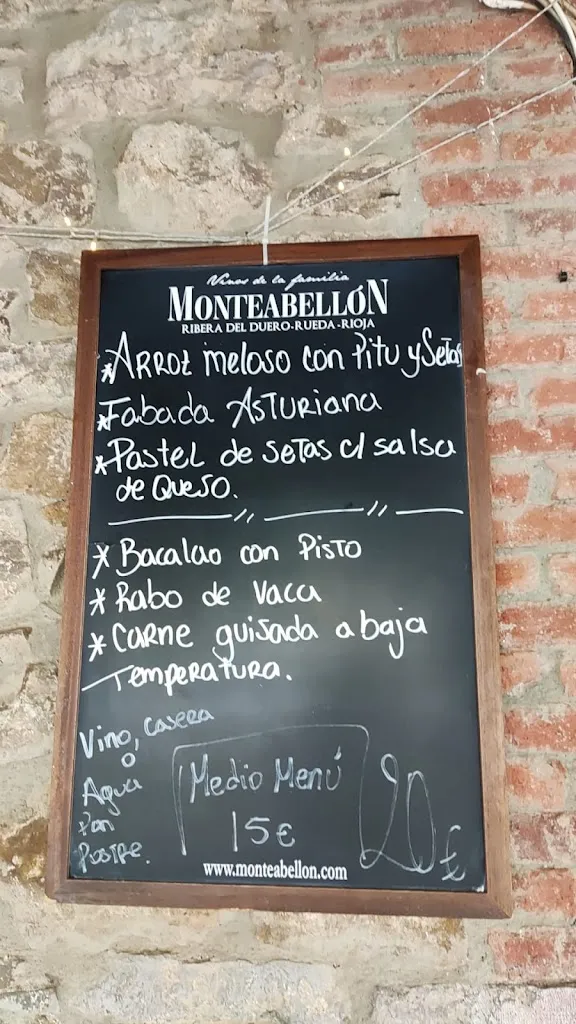 Vinos de la familia
MONTEABELLÓN
RIBERA DEL DUERO-RUEDA-RIOJA
*Arroz meloso con Pitu y Setas
*Fabada Asturiana
*Pastel de setas c/ salsa
de Queso.
* Bacalao con Pisto
* Rabo de Vaca
* Carne guisada a baja
Temperatura.
Vino, casera
o
Agua
Pan
Postre.
Medio Menú
15€
20€
www.monteabellon.com